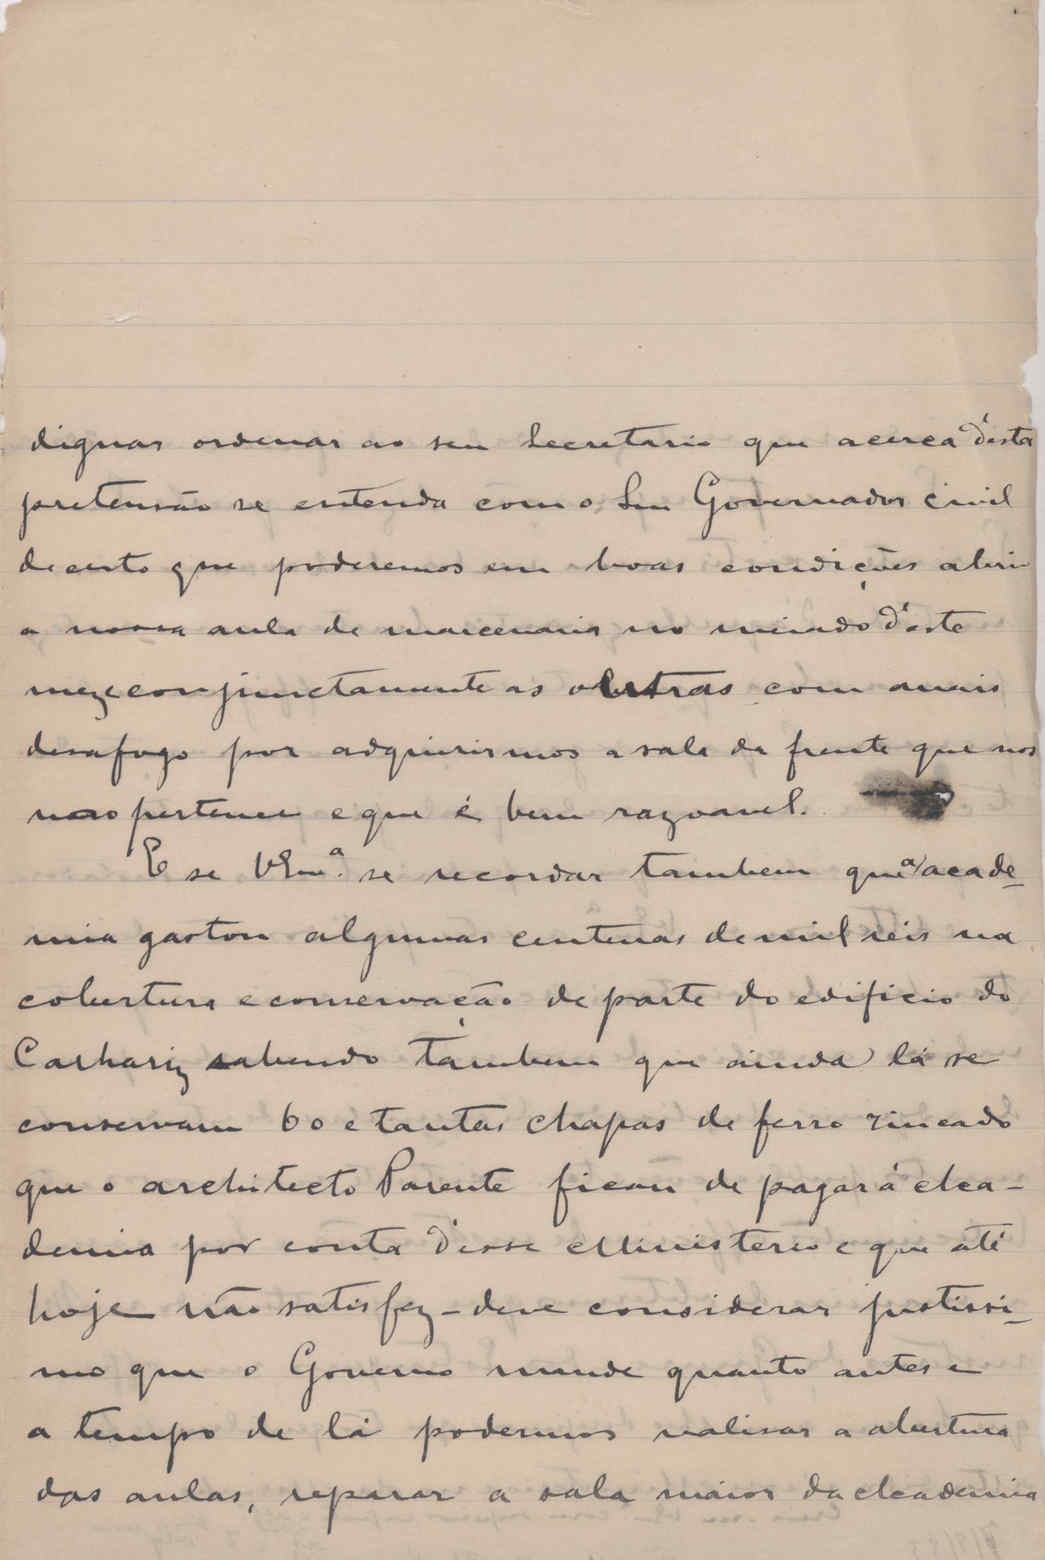 dignar ordenar ao seu Secretario que acerca d'esta
pretensão se entenda com o Snr Governador civil
decerto que poderemos em boas condições abrir
a nossa aula de marcenaria no meiado d'este
mez conjunctamente as outras com mais
desafogo por adquirirmos a sala da frente que nos
não pertence e que é bem razoavel.
E se VExª. se recordar tambem que a acade-
mia gastou algumas centenas de mil réis na
cobertura e conservação de parte do edificio do
Calhariz sabendo tambem que ainda lá se
conservam 60 e tantas chapas de ferro zincado
que o architecto Parente ficou de pagar á Aca-
demia por conta d'esse Ministerio e que até
hoje não satisfez - deve considerar justissi-
mo que o Governo mande quanto antes e
a tempo de lá podermos realisar a abertura
das aulas, reparar a sala maior da Academia